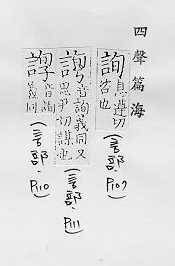 四聲篇海
詢 息遵切
咨也
(言部.P107)
音詢義同又
思尹切謀也
(言部.P111)
音詢
義同
(言部.P110)